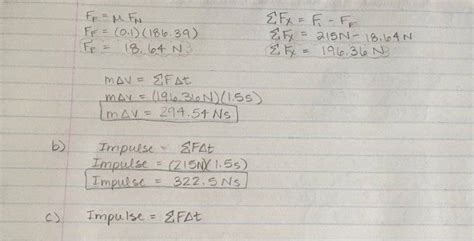 F_F = μ F_N
F_F = (0.1)(186.39)
F_F = 18.64 N
ΣF_X = F_1 - F_F
ΣF_X = 215N - 18.64N
ΣF_X = 196.36 N
m∆V = ΣF∆t
m∆v = (196.36N)(1.5s)
m∆V = 294.54 Ns
b) Impulse = ΣF∆t
Impulse = (215N)(1.5s)
Impulse = 322.5 Ns
c) Impulse = ΣF∆t